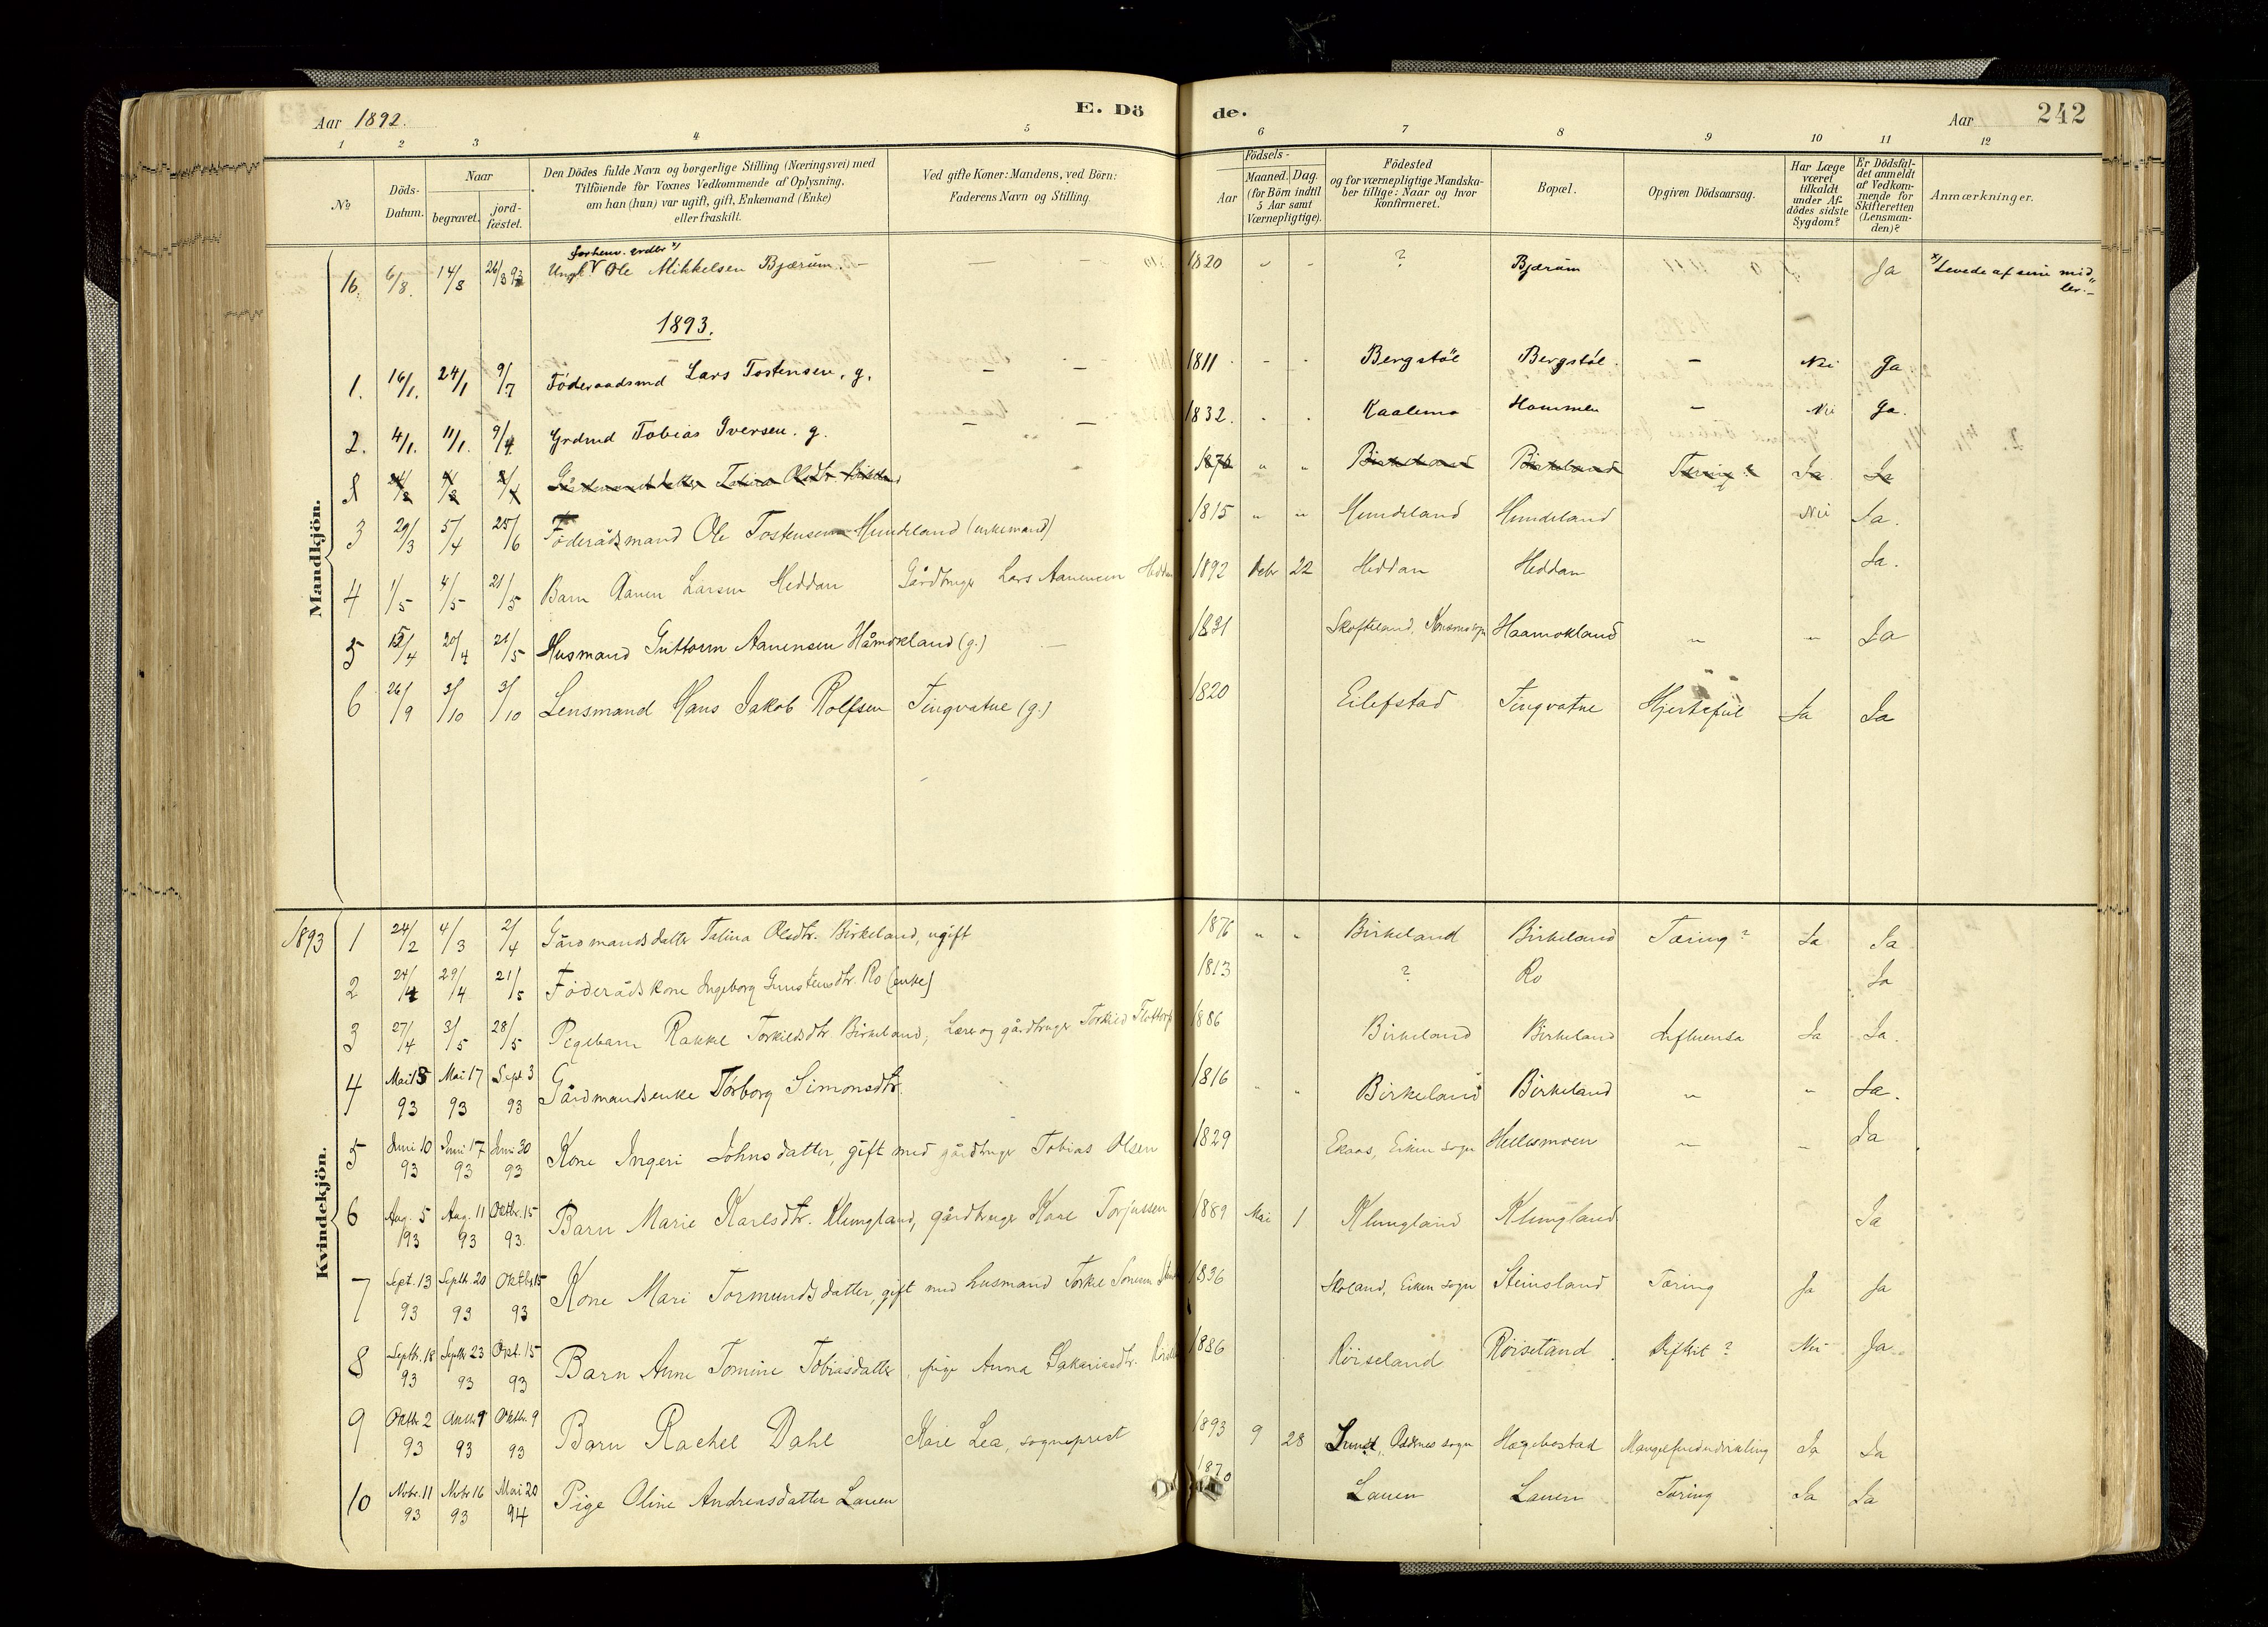 Aar 1892. E. Dö de. Aar 242
1 2 3 4 5 6 7 8 9 10 11 12
No. Döds-Datum. Naar begravet. jord-fæstet. Den Dödes fulde Navn og borgerlige Stilling (Næringsvei) med Tilföiende for Voxnes Vedkommende af Oplysning, om han (hun) var ugift, gift, Enkemand (Enke) eller fraskilt. Ved gifte Koner: Mandens, ved Börn: Faderens Navn og Stilling. Födsels- Aar Maaned. Dag. (for Börn indtil 5 Aar samt Værnepligtige). Födested og for værnepligtige Mandskaber tillige: Naar og hvor Konfirmeret. Bopæl. Opgiven Dödsaarsag. Har Læge været tilkaldt under Afdödes sidste Sygdom? Er Dödsfaldet anmeldt af Vedkommende for Skifteretten (Lensmanden)? Anmærkninger.
Mandkjön.
16. 6/8. 14/8 26/3 93 Ungk. Ole Mikkelsen Bjærum. 1820 " - ? Bjærum Ja x) Levede af sine midler.-
1893.
1. 16/1. 24/1 9/7 Föderaadsmd Lars Tostensen, g. — — 1811 - - Bergstöl Bergstöl — Nei Ja
2. 4/1. 11/1. 9/4. Grdmd Tobias Iversen. g. — — 1832. Kaalemo Hommen — Nei Ja.
1876 " " Birkeland Birkeland Tæring? Ja Ja
3 29/3 5/4 25/6 Föderådsmand Ole Tostensen Hundeland (enkemand) 1815 " " Hundeland Hundeland Nei Ja.
4 1/5 4/5 21/5 Barn Aanen Larsen Heddan Gårdbruger Lars Aanensen Heddan 1892 Debr 22 Heddan Heddan Ja.
5 15/4 20/4 21/5 Husmand Guttorm Aanensen Håmokland (g.) 1821 Skofteland, Konsmo sogn Haamokland " " Ja
6 26/9 3/10 3/10 Lensmand Hans Jakob Rolfsen Tingvatne (g.) 1820 Eilefstad Tingvatne Hjertefeil Ja Ja
Kvindekjön.
1893 1 24/2 4/3 2/4 Gårdmandsdatter Talina Olsdtr. Birkeland, ugift 1876 " " Birkeland Birkeland Tæring? Ja Ja
2 24/4 29/4 21/5 Föderådskone Ingeborg Gunsteinsdtr. Ro (enke) 1813 ? Ro Ja
3 27/4 3/5 28/5 Pigebarn Rakkel Torkildsdtr. Birkeland; Lærer og gårdbruger Torkild Flottorp 1886 Birkeland Birkeland Influensa Ja Ja.
4 Mai 13 93 Mai 17 93 Sept 3 93 Gårdmandsenke Torborg Simonsdtr. 1816 Birkeland Birkeland " " Ja.
5 Juni 10 93 Juni 17 93 Juni 30 93 Kone Ingeri Johnsdatter, gift med gårdbruger Tobias Olsen 1829 Ekaas, Eiken sogn Hellesmoen " " Ja
6 Aug. 5 93 Aug. 11 93 Oktbr. 15 93. Barn Marie Karlsdtr. Klungland, gårdbruger Karl Torjussen 1889 Mai 1 Klungland Klungland Ja
7 Sept. 13 93 Septb. 20 93 Oktbr 15 93 Kone Mari Tormundsdatter, gift med husmand Torkel 1836 Skeland, Eiken sogn Steinsland Tæring Ja Ja
8 Septb. 18 93 Septbr 23 93 Okt. 15 93 Barn Anne Tomine Tobiasdatter, pige Anna Sakariasdtr. 1886 Röiseland Röiseland Difterit? Nei Ja
9 Oktbr 2 93 Oktbr 9 93 Oktbr. 9 93 Barn Rachel Dahl Karl Lea, sogneprest 1893 9 28 Lund, Oddernes sogn Hægebostad Mangelfuld udvikling Ja Ja
10 Nvbr. 11 93 Nvbr 16 93 Mai 20 94 Pige Oline Andreasdatter Lauen 1870 Lauen Lauen Tæring Ja Ja